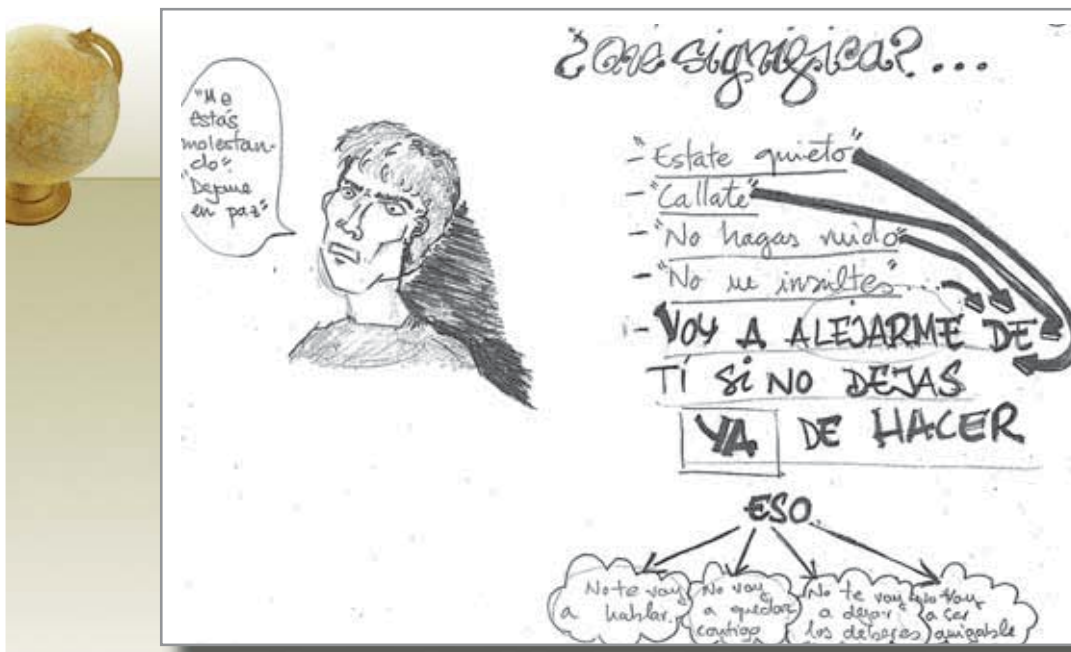 "Me
estás
molestan-
do".
"Dejame
en paz"
¿Qué significa?...
- "Estate quieto"
- "Callate"
- "No hagas ruido"
- "No me insultes"...
- VOY A ALEJARME DE
TÍ SI NO DEJAS
YA DE HACER
ESO.
No te voy
a hablar.
No voy
a quedar
contigo
No te voy
a dejar
los deberes
No voy
a ser
amigable